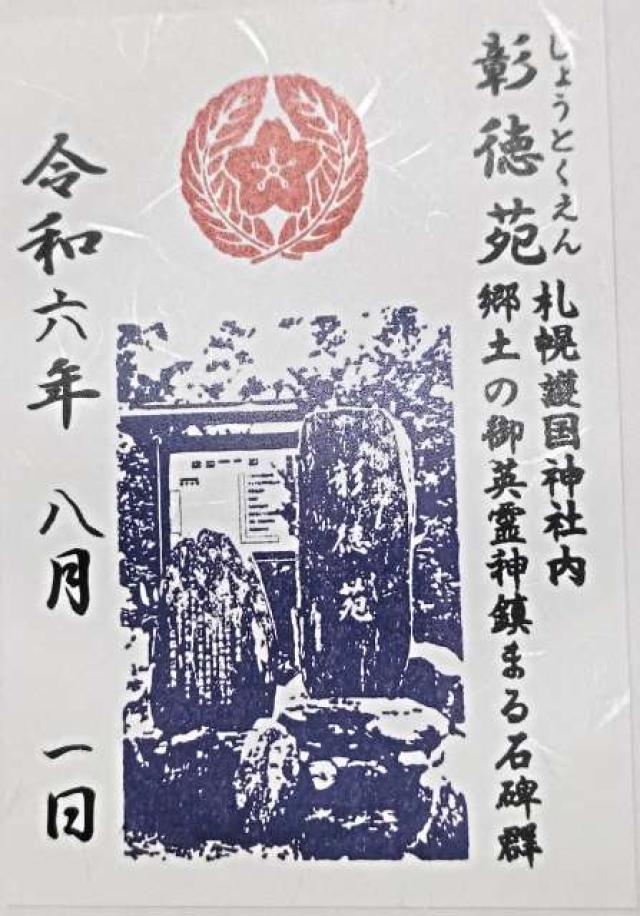 しょうとくえん
彰徳苑
札幌護国神社内
郷土の御英霊神鎮まる石碑群
彰徳苑
令和六年 八月 一日